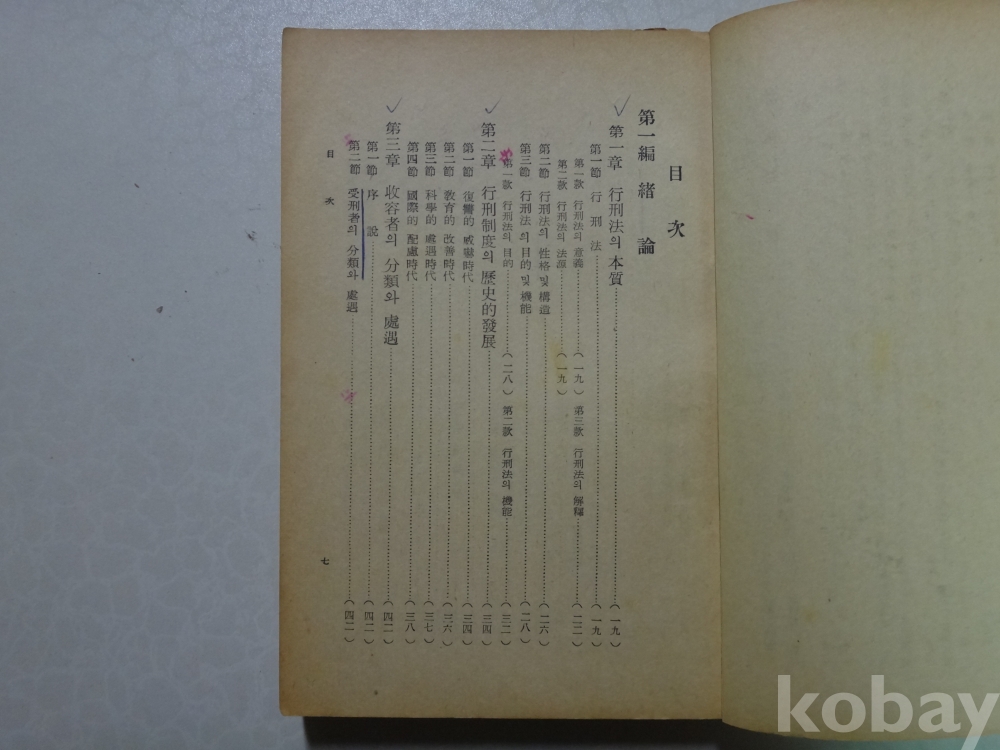 目次
第一編 緒論
第一章 行刑法의 本質……(一九)
第一節 行刑法……(一九)
第一款 行刑法의 意義……(一九) 第三款 行刑法의 解釋……(二二)
第二款 行刑法의 法源……(一九)
第二節 行刑法의 性格 및 構造……(二六)
第三節 行刑法의 目的 및 機能……(二八)
第一款 行刑法의 目的……(二八) 第二款 行刑法의 機能……(三二)
第二章 行刑制度의 歷史的 發展……(三四)
第一節 復讐的 威嚇時代……(三四)
第二節 敎育的 改善時代……(三六)
第三節 科學的 處遇時代……(三七)
第四節 國際的 配慮時代……(三八)
第三章 收容者의 分類와 處遇……(四二)
第一節 序說……(四二)
第二節 受刑者의 分類와 處遇……(四二)
目次
七
kobay